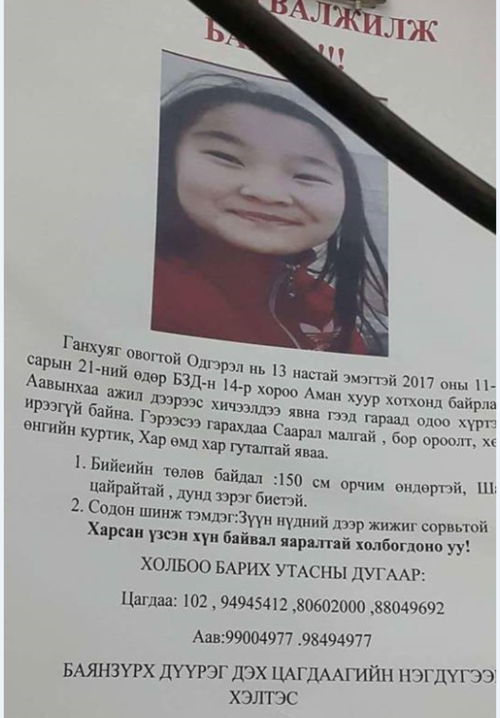 ВАЛЖИЛЖ
!!!
Ганхуяг овогтой Одгэрэл нь 13 настай эмэгтэй 2017 оны 11-
сарын 21-ний өдөр БЗД-н 14-р хороо Аман хуур хотхонд байрла
Аавынхаа ажил дээрээс хичээлдээ явна гээд гараад одоо хүртэ
ирээгүй байна. Гэрээсээ гарахдаа Саарал малгай , бор ороолт, хө
өнгийн куртик, Хар өмд хар гуталтай яваа.
1. Бийеийн төлөв байдал :150 см орчим өндөртэй, Ша
цайрайтай , дунд зэрэг биетэй.
2. Содон шинж тэмдэг:Зүүн нүдний дээр жижиг сорвьтой
Харсан үзсэн хүн байвал яаралтай холбогдоно уу!
ХОЛБОО БАРИХ УТАСНЫ ДУГААР:
Цагдаа: 102 , 94945412 ,80602000 ,88049692
Аав:99004977 .98494977
БАЯНЗҮРХ ДҮҮРЭГ ДЭХ ЦАГДААГИЙН НЭГДҮГЭЭ
ХЭЛТЭС